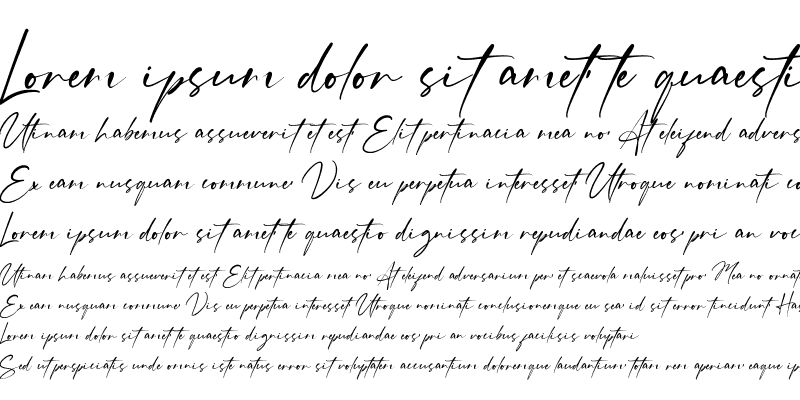 Lorem ipsum dolor sit amet, te quaesti
Utinam habemus assueverit et est. Elit pertinacia mea no. At eleifend advers
Ex eam nusquam commune. Vis eu perpetua interesset. Utroque nominati co
Lorem ipsum dolor sit amet, te quaestio dignissim repudiandae eos, pri an voc
Utinam habemus assueverit et est. Elit pertinacia mea no. At eleifend adversarium per, et scaevola maluisset pro. Mea no ornat
Ex eam nusquam commune. Vis eu perpetua interesset. Utroque nominati conclusionemque eu sea, id sit error tincidunt. Has
Lorem ipsum dolor sit amet, te quaestio dignissim repudiandae eos, pri an vocibus facilisis voluptari
Sed ut perspiciatis unde omnis iste natus error sit voluptatem accusantium doloremque laudantium, totam rem aperiam, eaque ip